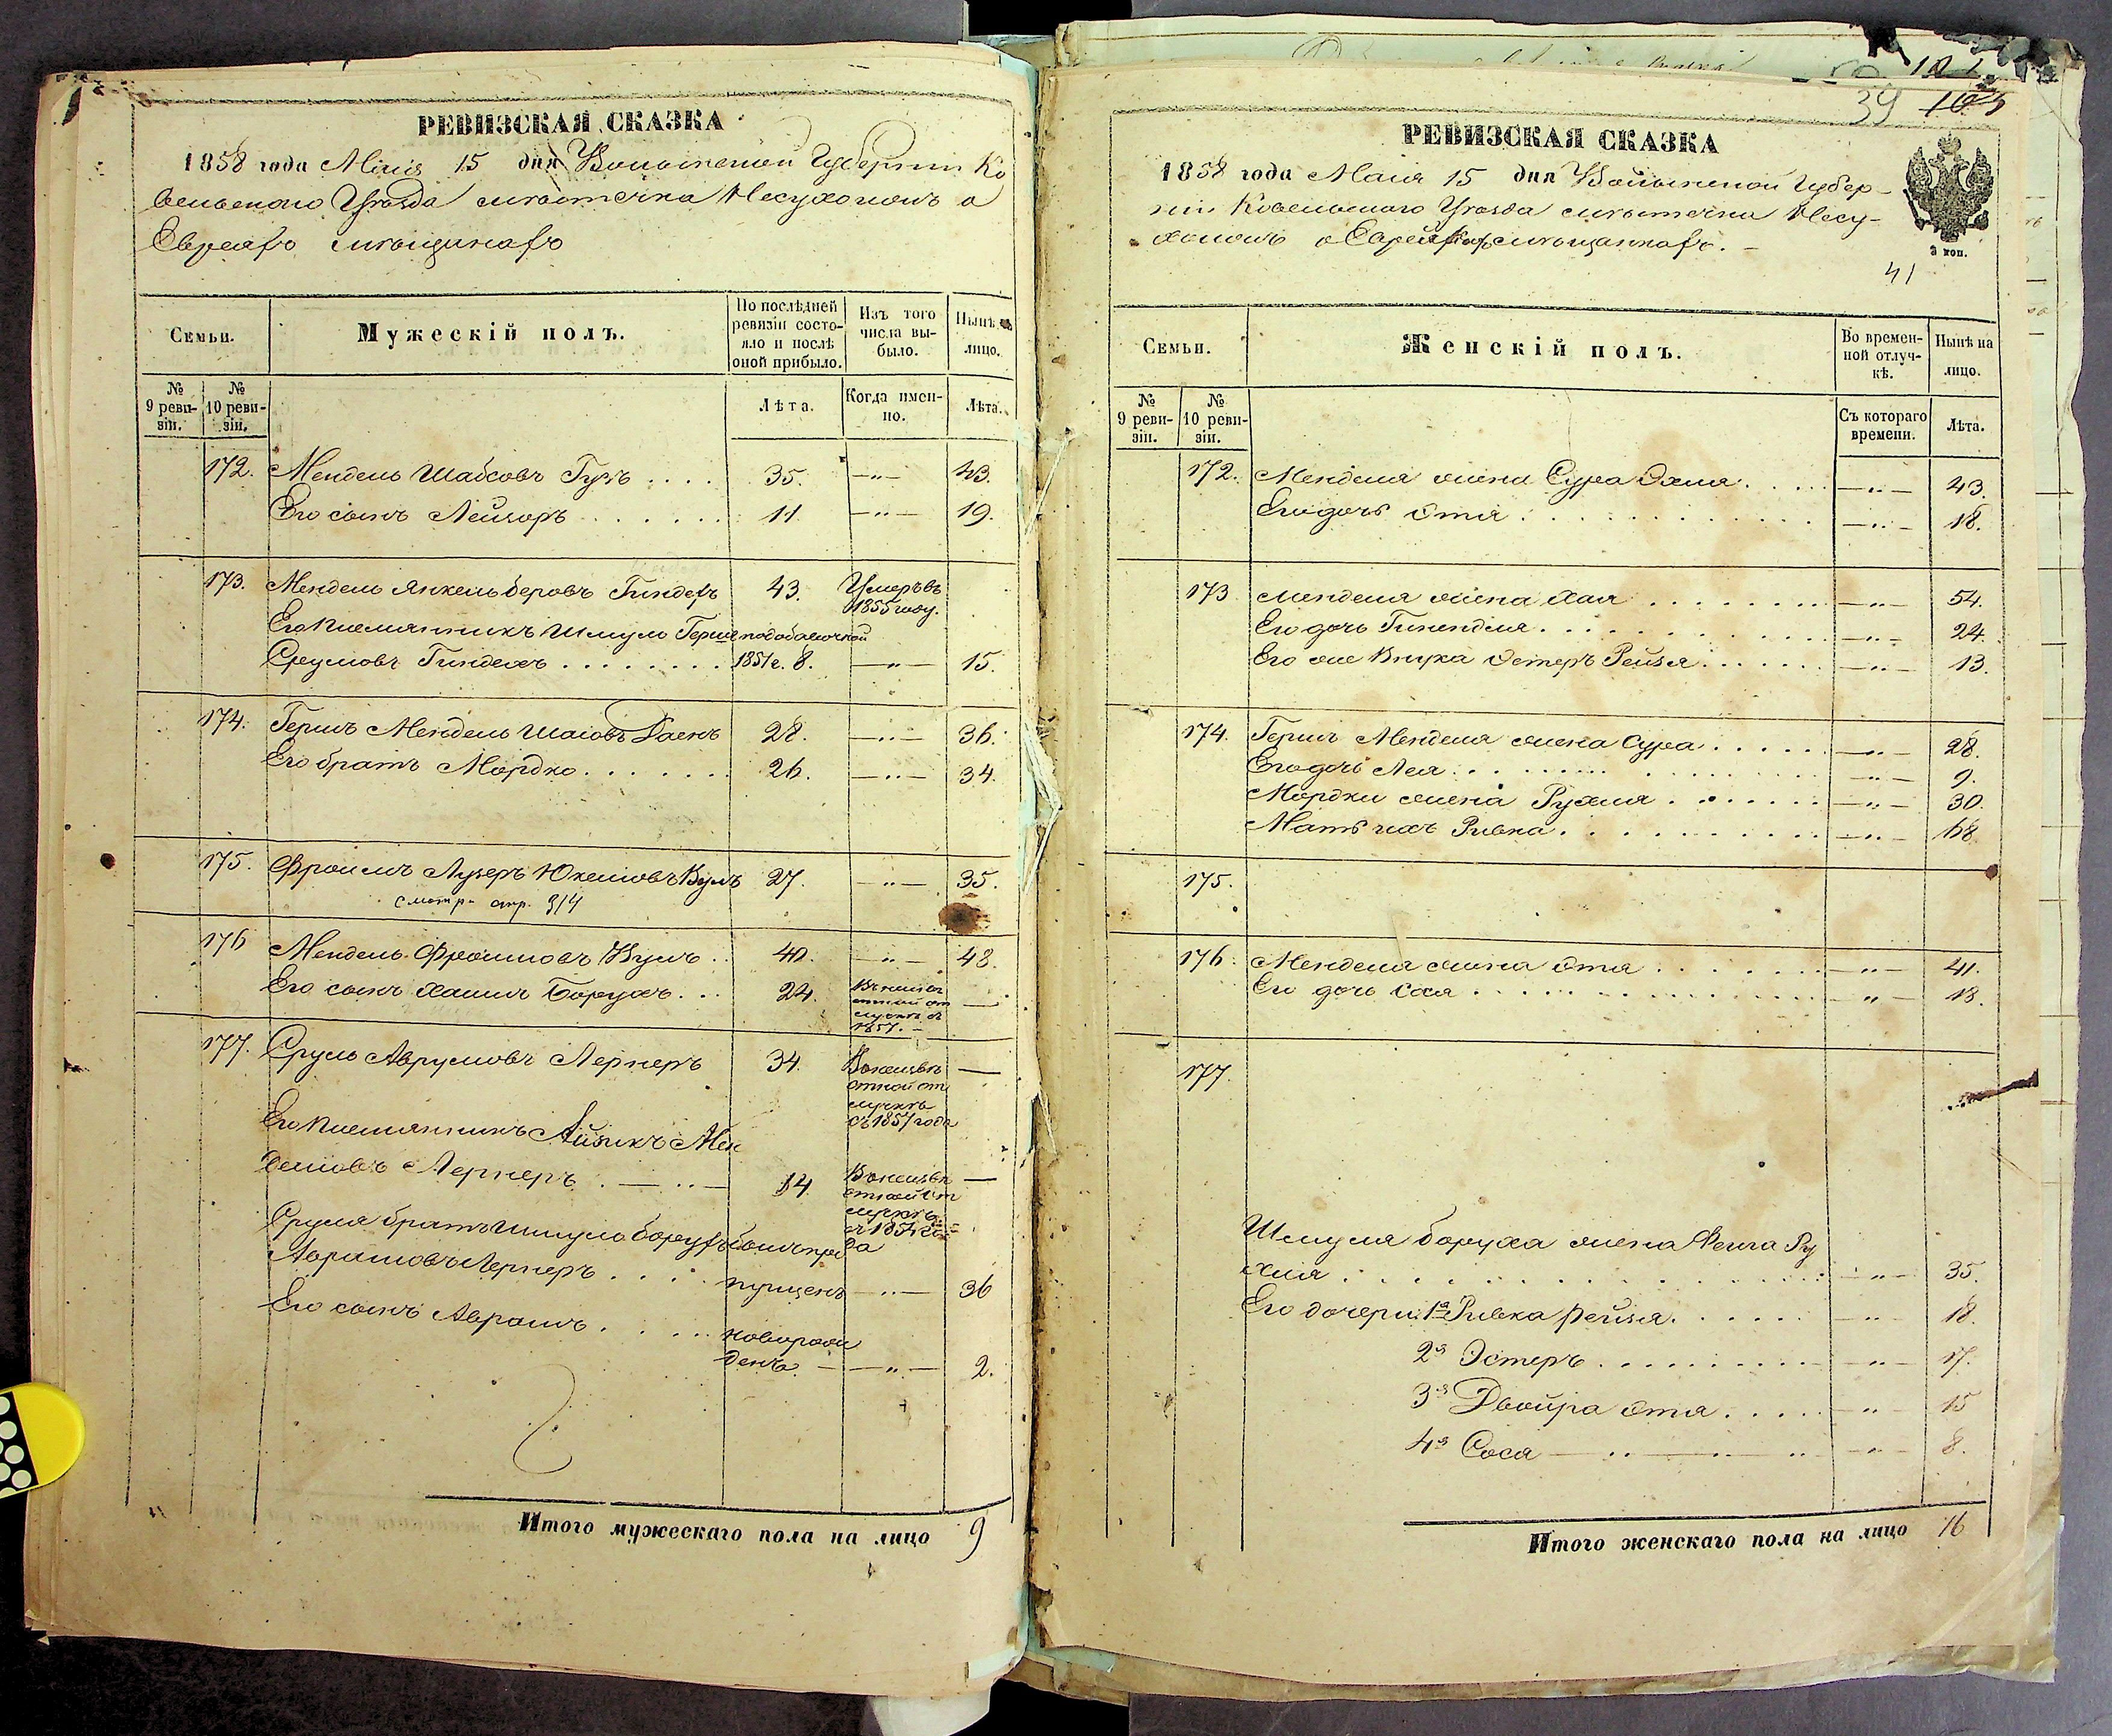 РЕВИЗСКАЯ СКАЗКА
1858 года Маія 15 дня Волынской Губерніи Ко
вельскаго Уѣзда мѣстечка Несухоижъ о
Евреяхъ мѣщанахъ
Семьи.
Мужескій полъ.
По послѣдней ревизіи состояло и послѣ оной прибыло.
Изъ того числа выбыло.
Нынѣ на лицо.
№ 9 ревизіи.
№ 10 ревизіи.
Лѣта.
Когда именно.
Лѣта.
172. Мендель Шабсовъ .... 35. —"— 43.
Его сынъ Лейзоръ ....... 11. —"— 19.
173. Мендель Янкель Беровъ 43. Умеръ въ 1855 году.
Его племянникъ Шмуль Герш
Сруловъ ........ 1851 г. 8. —"— 15.
174. Гершъ Мендель Шаіовъ 28. —"— 36.
Его братъ Мордко ....... 26. —"— 34.
175. Фроимъ Лузеръ 27. —"— 35.
смотр. стр. 314
176 Мендель Фроимовъ .. 40. —"— 48.
Его сынъ Хаимъ Борухъ ... 24. 1857. —
177. Сруль Аврумовъ Лернеръ 34. съ 1857 года —
Его племянникъ Айзикъ Мен
делевъ Лернеръ . — .. — 14. —
Сруля братъ Шмуль Борухъ
Аврамовъ Лернеръ .... пущенъ —"— 36
Его сынъ Аврамъ .... новорож
денъ. — —"— 2.
Итого мужескаго пола на лицо 9
101
39 103
РЕВИЗСКАЯ СКАЗКА
1858 года Маія 15 дня Волынской Губер-
ніи Ковельскаго Уѣзда мѣстечка Несу-
хоижъ о Еврейкахъ мѣщанкахъ. —
3 коп.
41
Семьи.
Женскій полъ.
Во временной отлучкѣ.
Нынѣ на лицо.
№ 9 ревизіи.
№ 10 ревизіи.
Съ котораго времени.
Лѣта.
172. Менделя жена Сура ..... —"— 43.
Его дочь Этя ............ —"— 18.
173 Менделя жена Хая ........ —"— 54.
Его дочь ............ —"— 24.
Его же внука Эстеръ Рейзя ...... —"— 13.
174. Гершъ Менделя жена Сура ...... —"— 28.
Его дочь Лея ............ —"— 9.
Мордки жена Рухля ....... —"— 30.
Мать ихъ Ривка ........... —"— 68.
175.
176. Менделя жена Этя ....... —"— 41.
Его дочь Хая .............. —"— 18.
177.
Шмуля Боруха жена Фейга Ру
хля .............. —"— 35.
Его дочери: 1я Ривка Рейзя ...... —"— 18.
2я Эстеръ ......... —"— 17.
3я Двойра Этя ..... —"— 15
4я Сося — .. — .. —"— 8.
Итого женскаго пола на лицо 16